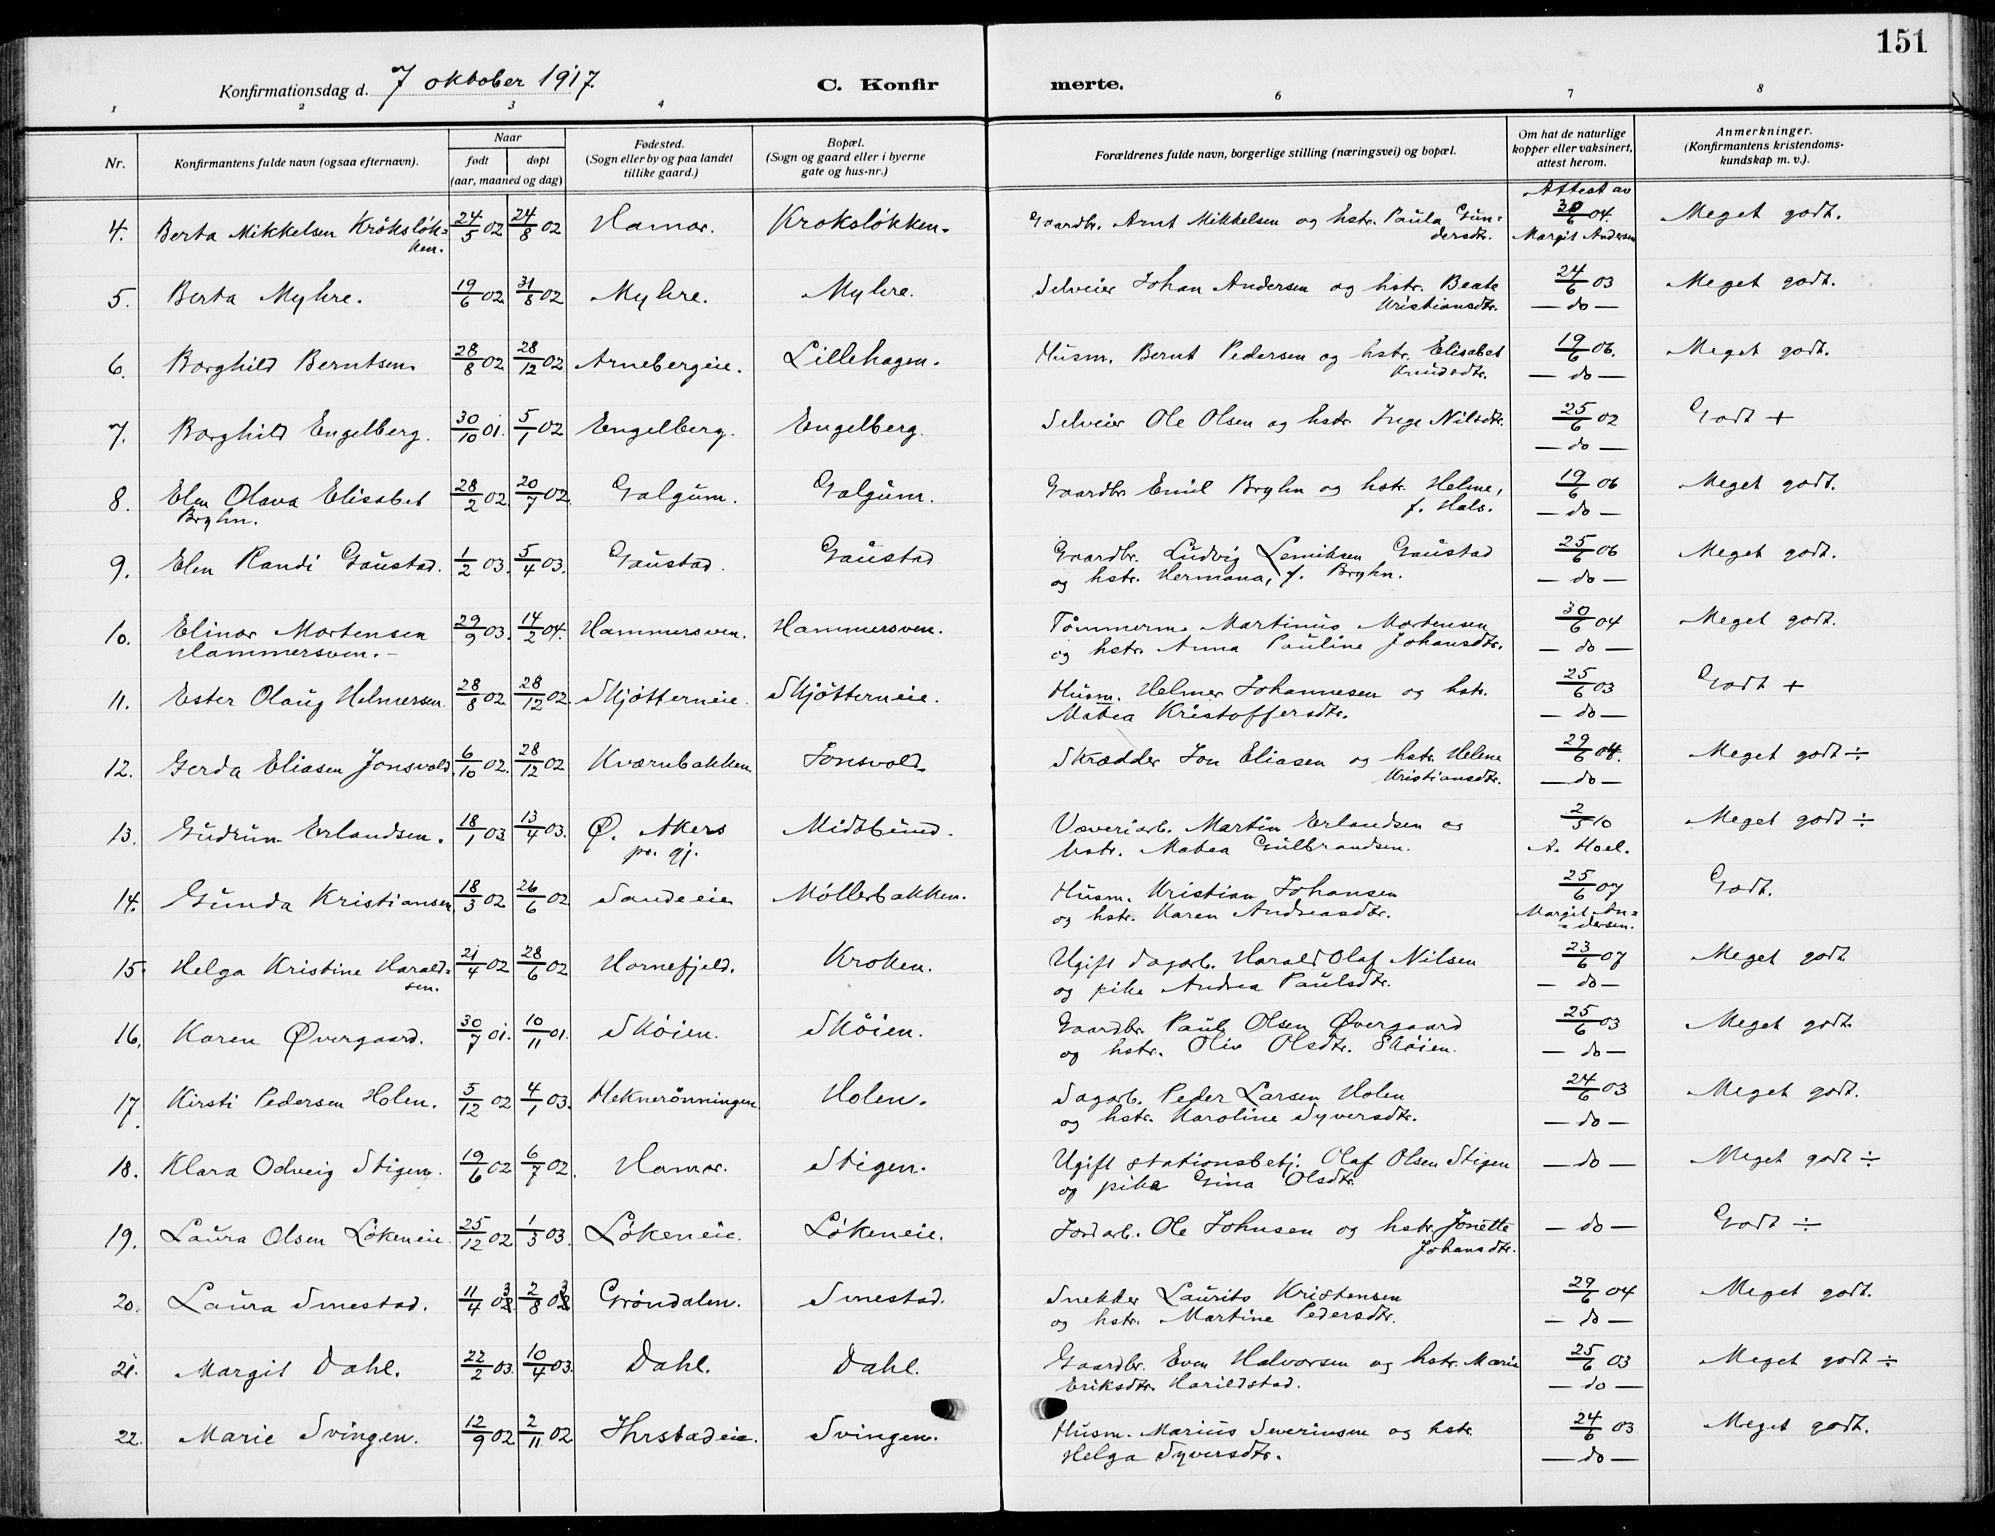 151
Konfirmationsdag d. 7 oktober 1917. C. Konfir merte.
1 2 3 4 5 6 7 8
Nr. Konfirmantens fulde navn (ogsaa efternavn). Naar født døpt (aar, maaned og dag) Fødested. (Sogn eller by og paa landet tillike gaard.) Bopæl. (Sogn og gaard eller i byerne gate og hus-nr.) Forældrenes fulde navn, borgerlige stilling (næringsvei) og bopæl. Om hat de naturlige kopper eller vaksinert, attest herom. Anmerkninger. (Konfirmantens kristendoms-kundskap m. v.).
Attest av
4. Berta Mikkelsen Kroksløk= 24/5 02 24/8 02 Hamar. Kroksløkken. Gaardbr. Arnt Mikkelsen og hstr. Paula Gun= 30/6 04. Meget godt.
ken. dersdtr. Margit Andersen
5. Berta Myhre. 19/6 02 31/8 02 Myhre. Myhre. Selveier Johan Andersen og hstr. Beate 24/6 03 Meget godt.
Kristiansdtr. — do —
6. Borghild Berntsen. 28/8 02 28/12 02 Arnebergeie. Lillehagen. Husm. Bernt Pedersen og hstr. Elisabet 19/6 06. Meget godt.
Knudsdtr. — do —
7. Borghild Engelberg. 30/10 01. 5/1 02 Engelberg. Engelberg. Selveier Ole Olsen og hstr. Inge Nilsdtr. 25/6 02 Godt +
— do —
8. Elen Olava Elisabet 28/2 02. 20/7 02. Galgum. Galgum. Gaardbr Emil Bryhn og hstr. Helene, 19/6 06 Meget godt.
Bryhn. f. Hals. — do —
9. Elen Randi Gaustad. 1/2 03. 5/4 03. Gaustad. Gaustad Gaardbr. Ludvig Lemiksen Gaustad 25/6 06 Meget godt.
og hstr. Hermana, f. Bryhn. — do —
10. Elinor Mortensen 29/9 03. 14/2 04. Hammersven. Hammersven. Tømmerm. Martinus Mortensen 30/6 04 Meget godt.
Hammersven. – og hstr. Anna Pauline Johansdtr. — do —
11. Ester Olaug Helmersen 28/8 02 28/12 02. Skjøtterneie. Skjøtterneie. Husm. Helmer Johannesen og hstr. 25/6 03 Godt +
Matea Kristoffersdtr. — do —
12. Gerda Eliasen Jonsvold. 6/10 02. 28/12 02 Kværnbakken Jonsvold. Skrædder Jon Eliasen og hstr. Helene 29/6 04. Meget godt ÷
Kristiansdtr. — do —
13. Gudrun Erlandsen. 18/1 03 13/4 03. Ø. Akers Midtbund. Væveriarb. Martin Erlandsen og 2/5 10 Meget godt ÷
pr. gj. hstr. Matea Gulbrandsen. A. Hoel.
14. Gunda Kristiansen 18/3 02 26/6 02 Sandeeie Møllerbakken. Husm. Kristian Johansen 25/6 07 Godt.
og hstr. Karen Andreasdtr. Margit An=
= dersen.
15. Helga Kristine Harald= 21/4 02 28/6 02 Hornefjeld. Kroken. Ugift dagarb. Harald Olaf Nilsen 23/6 07 Meget godt
sen. og pike Andrea Paulsdtr. — do —
16. Karen Øvergaard. 30/7 01. 10/11 01. Skøien. Skøien. Gaardbr. Paul Olsen Øvergaard 25/6 03 Meget godt.
og hstr. Oliv Olsdtr. Skøien. — do —
17. Kirsti Pedersen Holen. 5/12 02 4/1 03. Meknerønningen Holen. Dagarb. Peder Larsen Holen 24/6 03 Meget godt.
og hstr. Karoline Syversdtr. — do —
18. Klara Odveig Stigen. 19/6 02 6/7 02. Hamar. Stigen. Ugift stationsbetj. Olaf Olsen Stigen — do — Meget godt ÷
og pike Gina Olsdtr.
19. Laura Olsen Løkeneie. 25/12 02 1/3 03. Løkeneie. Løkeneie. Jordarb. Ole Johnsen og hstr. Jonette — do — Godt ÷
Johansdtr.
20. Laura Smestad. 11/4 03 2/8 03 Grøndalen. Smestad. Snekker Laurits Kristensen 29/6 04 Meget godt.
og hstr. Martine Pedersdtr. — do —
21. Margit Dahl. 22/2 03. 10/4 03. Dahl. Dahl. Gaardbr. Even Halvorsen og hstr. Marie 25/6 03 Meget godt ÷
Eriksdtr. Harildstad. — do —
22. Marie Svingen. 12/9 02 2/11 02 Ihrstadeie. Svingen. Husm. Marius Severinsen og hstr. 24/6 03 Meget godt.
Helga Syversdtr. — do —